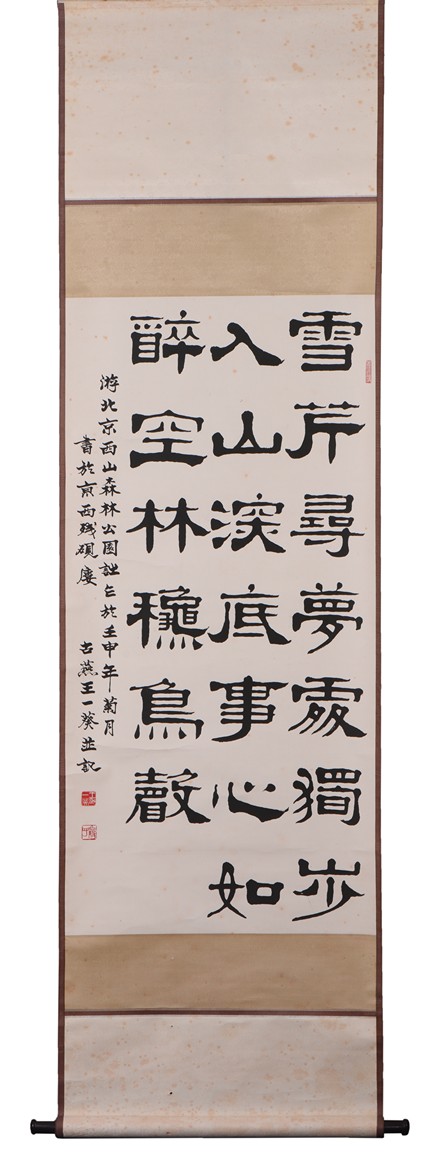 雪芹尋夢處獨步
入山深底事心如
醉空林穐鳥聲
游北京西山森林公園於壬申年菊月
書於京西残硯廔 古燕王一葵並記